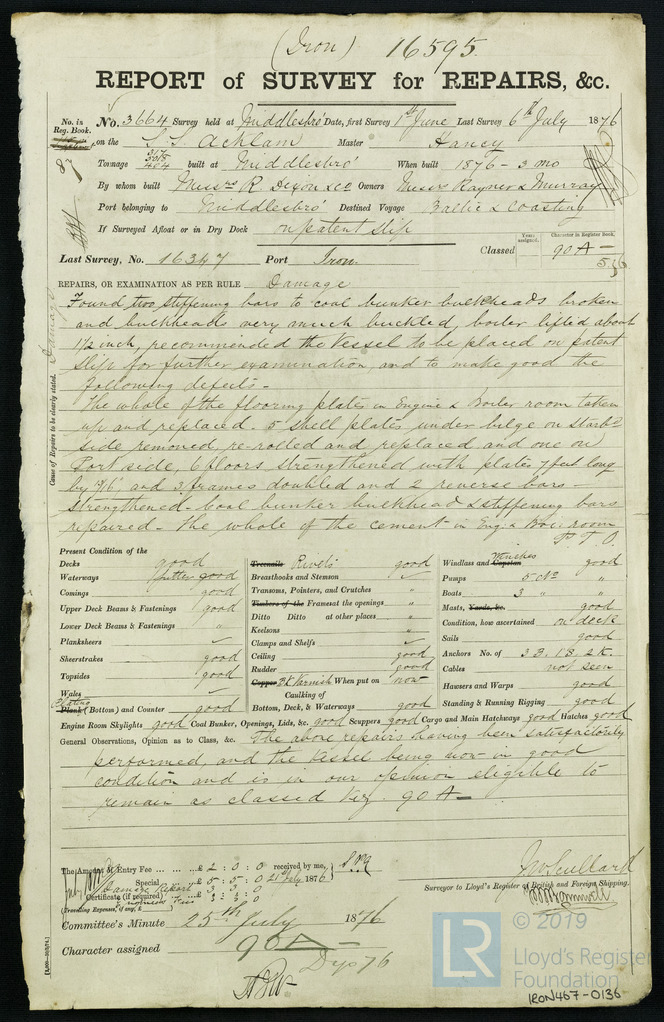 (Iron) 16595.
REPORT of SURVEY for REPAIRS, &c.
No. in Reg. Book. No. 3664 Survey held at Middlesbro' Date, first Survey 1st June Last Survey 6th July 1876
on the S.S. Acklam Master Haney
Tonnage built at Middlesbro' When built 1876 - 3 mo
By whom built Messrs R Dixon & Co Owners Messrs Rayner & Murray
Port belonging to Middlesbro' Destined Voyage Baltic & Coasting
If Surveyed Afloat or in Dry Dock on patent slip
Years assigned. Character in Register Book,
Classed 90 A —
5,76
Last Survey, No. 16347 Port Iron.
REPAIRS, OR EXAMINATION AS PER RULE Damage
Cause of Repairs to be clearly stated. Damage
Found two stiffening bars to coal bunker bulkheads broken
and bulkheads very much buckled, boiler lifted about
1 1/2 inch, recommended the vessel to be placed on patent
slip for further examination, and to make good the
following defects. -
The whole of the flooring plates in Engine & Boiler room taken
up and replaced. 5 shell plates under bilge on Starbd
side removed, re-rolled and replaced and one on
Port side, 6 floors strengthened with plates 7 feet long
by and 3 frames doubled and 2 reverse bars -
strengthened - Coal bunker bulkhead & stiffening bars
repaired - The whole of the cement in Eng & Boi room
P.T.O.
Present Condition of the
Decks good
Waterways gutter good
Comings good
Upper Deck Beams & Fastenings good
Lower Deck Beams & Fastenings "
Planksheers ✓
Sheerstrakes good
Topsides good
Wales ✓
Plating Plank (Bottom) and Counter good
Treenails Rivets good
Breasthooks and Stemson ✓
Transoms, Pointers, and Crutches "
Timbers of the Frames at the openings "
Ditto Ditto at other places "
Keelsons "
Clamps and Shelfs ✓
Ceiling good
Rudder good
Copper BK Varnish When put on now
Caulking of
Bottom, Deck, & Waterways good
Windlass and Capstan Winches good
Pumps 5 No "
Boats 3 " "
Masts, Yards, &c. good
Condition, how ascertained on deck
Sails good
Anchors No. of 3 B. 1 S. 2 K.
Cables not seen
Hawsers and Warps good
Standing & Running Rigging good
Engine Room Skylights good Coal Bunker, Openings, Lids, &c. good Scuppers good Cargo and Main Hatchways good Hatches good
General Observations, Opinion as to Class, &c. The above repairs having been satisfactorily
performed, and the vessel being now in good
condition and is in our opinion eligible to
remain as classed viz. 90 A —
The Amount of Entry Fee £ 2 : 0 : 0 received by me,
Special £ 5 : 5 : 0 21st July 1876
Damage Report
Certificate (if required)
(Travelling Expenses, if any, £ )
Surveyor to Lloyd's Register of British and Foreign Shipping.
Committee's Minute 25th July 1876
Character assigned 90 A —
© 2019
LR
Lloyd's Register
Foundation
IRON467-0136